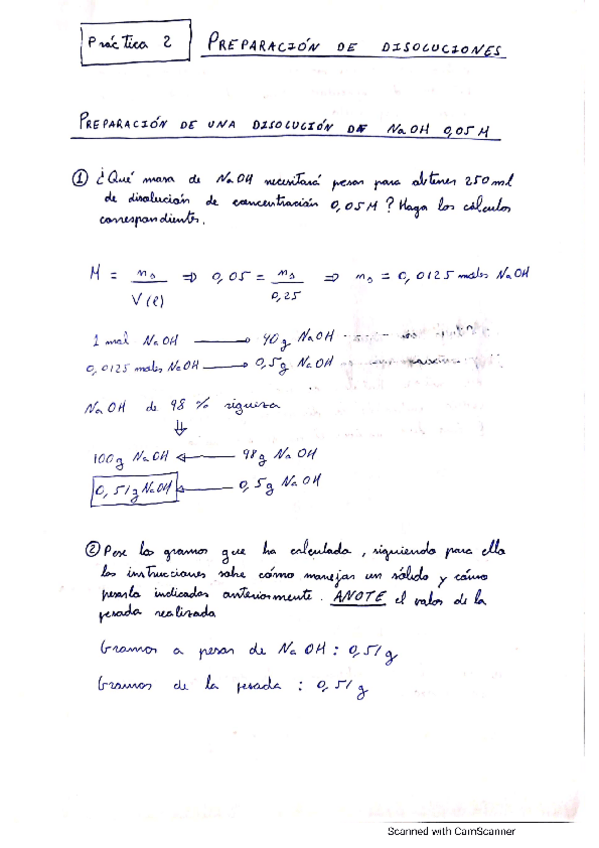 Práctica 2 PREPARACIÓN DE DISOLUCIONES
PREPARACIÓN DE UNA DISOLUCIÓN DE NaOH 0,05 M
① ¿Qué masa de NaOH necesitará pesar para obtener 250 ml
de disolución de concentración 0,05 M? Haga los cálculos
correspondientes.
M = ns / V(l) ⇒ 0,05 = ns / 0,25 ⇒ ns = 0,0125 moles NaOH
1 mol NaOH → 40 g NaOH
0,0125 moles NaOH → 0,5 g NaOH
NaOH de 98 % riqueza
⇓
100 g NaOH ← 98 g NaOH
0,51 g NaOH ← 0,5 g NaOH
② Pese los gramos que ha calculado, siguiendo para ello
las instrucciones sobre cómo manejar un sólido y cómo
pesarlo indicadas anteriormente. ANOTE el valor de la
pesada realizada
Gramos a pesar de NaOH : 0,51 g
Gramos de la pesada : 0,51 g
Scanned with CamScanner